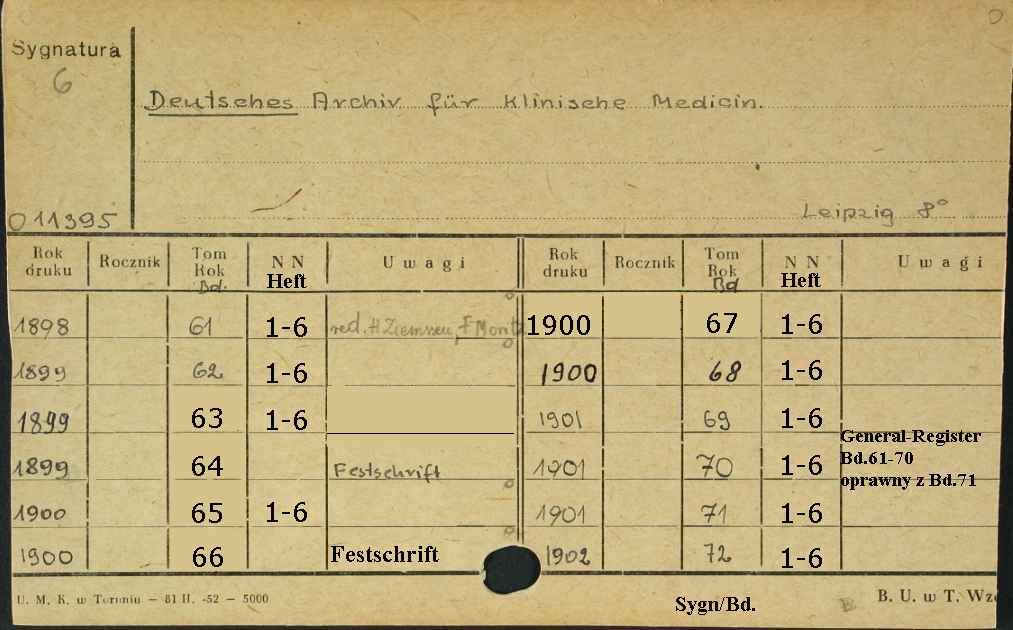 Sygnatura
6
Deutsches Archiv für Klinische Medicin.
011395
Leipzig 8°
Rok druku Rocznik Tom Rok Bd. N N Heft Uwagi Rok druku Rocznik Tom Rok Bd N N Heft Uwagi
1898 61 1-6 red. H Ziemssen, F Moritz 1900 67 1-6
1899 62 1-6 1900 68 1-6
1899 63 1-6 1901 69 1-6
1899 64 Festschrift 1901 70 1-6 General-Register Bd.61-70 oprawny z Bd.71
1900 65 1-6 1901 71 1-6
1900 66 Festschrift 1902 72 1-6
U. M. K. w Toruniu — 81 II. -52 — 5000
Sygn/Bd.
B. U. w T.